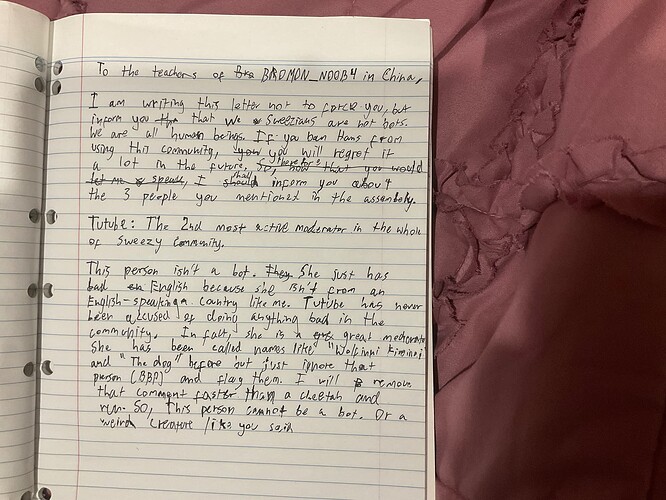 To the teachers of Bra BADMON_NOOB4 in China,
I am writing this letter not to force you, but
inform you that we Sweezians are not bots.
We are all human beings. If you ban Hans from
using this community, your you will regret it
a lot in the future. So, therefore, now that you would
let me speak, I should shall inform you about
the 3 people you mentioned in the assembly.
Tutube: The 2nd most active moderator in the whole
of Sweezy Community.
This person isn't a bot. They She just has
bad en English because she isn't from an
English-speaking country like me. Tutube has never
been accused of doing anything bad in the
community. In fact, she is a great moderator.
She has been called names like "Wolfinni Kiminni"
and "The dog" before but just ignore that
person (BBP) and flag them. I will remove
that comment faster than a cheetah and
run. So, this person cannot be a bot. Or a
weird creature like you said